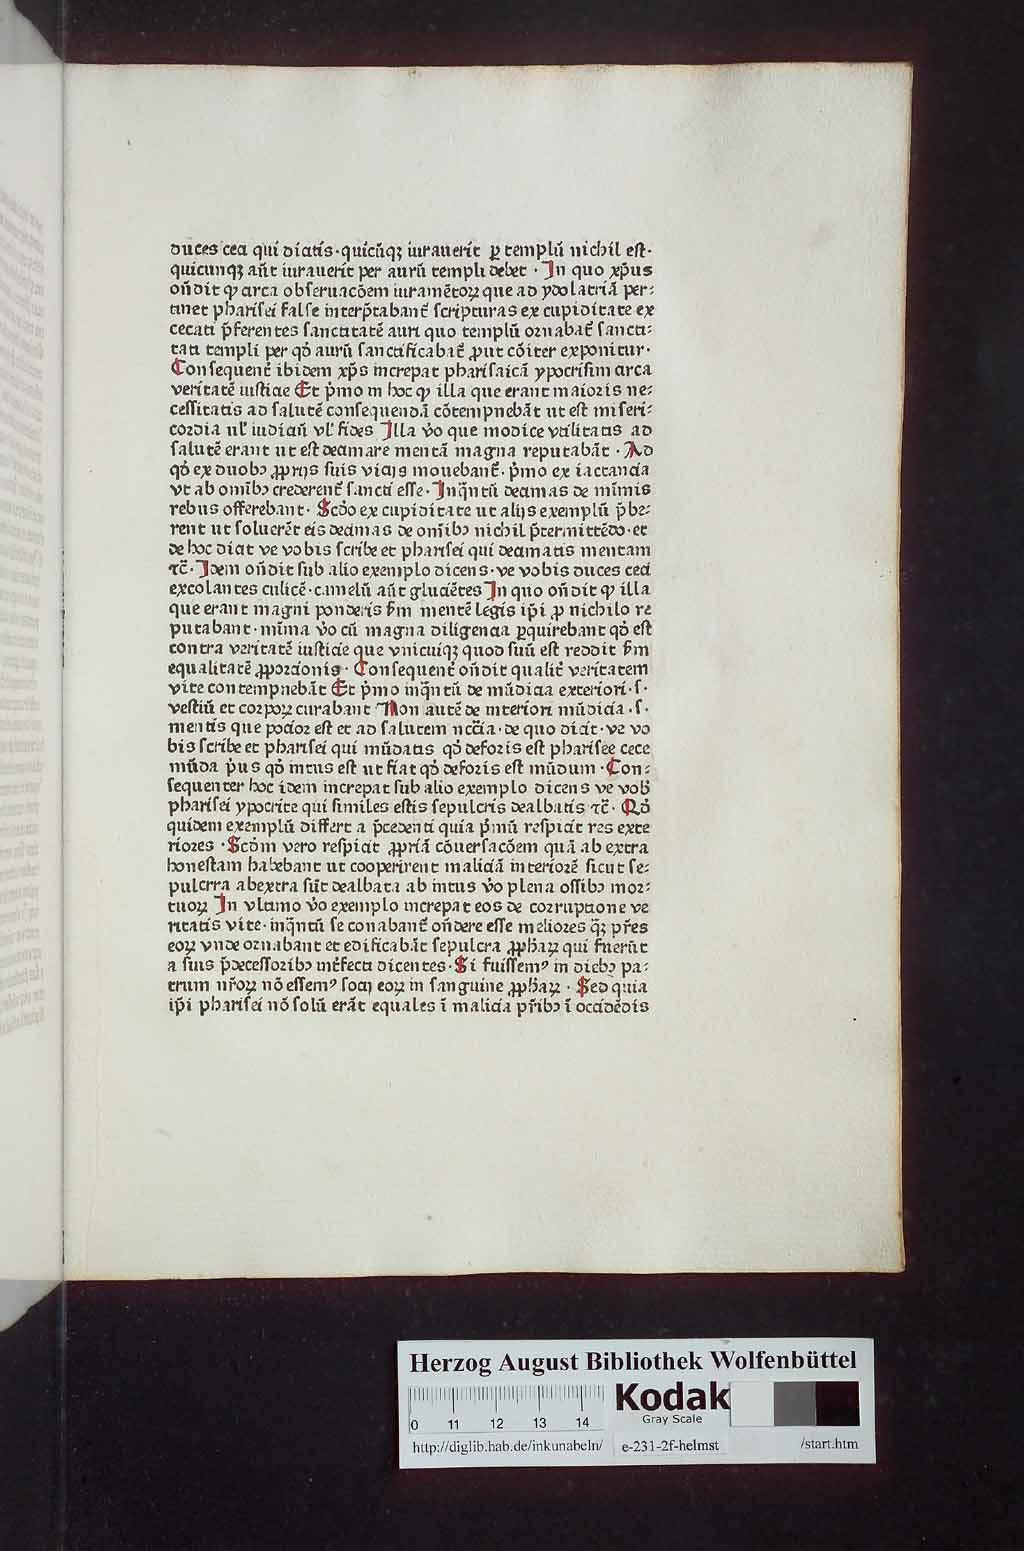 duces ceci qui dicitis·quicũqꝫ iurauerit ꝑ templũ nichil est·
quicunqꝫ aũt iurauerit per aurũ templi debet · In quo xp̃us
oñdit ꝙ circa obseruacõem iuramẽtoꝝ que ad ydolatriã per⸗
tinet pharisei false interp̃tabant̃ scripturas ex cupiditate ex
cecati p̃ferentes sanctitatẽ auri quo templũ ornabat̃ sancti⸗
tati templi per qd̃ aurũ sanctificabat̃ ꝓut cõiter exponitur·
Consequent̃ ibidem xp̃s increpat pharisaicã ypocrisim circa
veritatẽ iusticie Et p̃mo in hoc ꝙ illa que erant maioris ne⸗
cessitatis ad salutẽ consequendã cõtempnebãt ut est miseri⸗
cordia ul' iudiciũ vl' fides Illa v̾o que modice vtilitatis ad
salutẽ erant ut est decimare mentã magna reputabãt · Ad
qd̃ ex duobꝰ ꝓprijs suis vicijs mouebant̃· p̃mo ex iactancia
vt ab omĩbꝰ crederent̃ sancti esse· Inq̃ntũ decimas de mĩmis
rebus offerebant· Scd̃o ex cupiditate ut alijs exemplũ p̃be⸗
rent ut soluerẽt eis decimas de omĩbꝰ nichil p̃termittẽdo· et
de hoc dicit ve vobis scribe et pharisei qui decimatis mentam
⁊c̃· Idem oñdit sub alio exemplo dicens·ve vobis duces ceci
excolantes culicẽ·camelũ aũt gluciẽtes In quo oñdit ꝙ illa
que erant magni ponderis s̃m mentẽ legis ip̃i ꝓ nichilo re
putabant·mĩma v̾o cũ magna diligencia ꝑquirebant qd̃ est
contra veritatẽ iusticie que vnicuiqꝫ quod suũ est reddit s̃m
equalitatẽ ꝓporcionis· Consequent̃ oñdit qualit̃ veritatem
vite contempnebãt Et p̃mo inq̃ntũ de mũdicia exteriori·s·
vestiũ et corpoꝝ curabant Non autẽ de interiori mũdicia·s·
mentis que pocior est et ad salutem ncc̃ia·de quo dicit·ve vo
bis scribe et pharisei qui mũdatis qd̃ deforis est pharisee cece
mũda p̾us qd̃ intus est ut fiat qd̃ deforis est mũdum·Con⸗
sequenter hoc idem increpat sub alio exemplo dicens ve vob̾
pharisei ypocrite qui similes estis sepulcris dealbatis ⁊c̃· Qd̃
quidem exemplũ differt a p̃cedenti quia p̾mũ respicit res exte
riores ·Scd̃m vero respicit ꝓpriã cõuersacõem quã ab extra
honestam habebant ut cooperirent maliciã interiorẽ sicut se⸗
pulcrra abextra sũt dealbata ab intus v̾o plena ossibꝰ mor⸗
tuoꝝ In vltimo v̾o exemplo increpat eos de corruptione ve
ritatis vite·inq̃ntũ se conabant̃ oñdere esse meliores q̃ꝫ p̃res
eoꝝ vnde ornabant et edificabãt sepulcra ꝓph̾aꝝ qui fuerũt
a suis p̃decessoribꝰ int̾fecti dicentes·Si fuissemꝰ in diebꝰ pa⸗
trum nr̃oꝝ nõ essemꝰ socij eoꝝ in sanguine ꝓph̾aꝝ · Sed quia
ip̃i pharisei nõ solũ erãt equales ĩ malicia pr̃ibꝰ ĩ occidẽdis
Herzog August Bibliothek Wolfenbüttel
Kodak
Gray Scale
0 11 12 13 14
http://diglib.hab.de/inkunabeln/ e-231-2f-helmst /start.htm